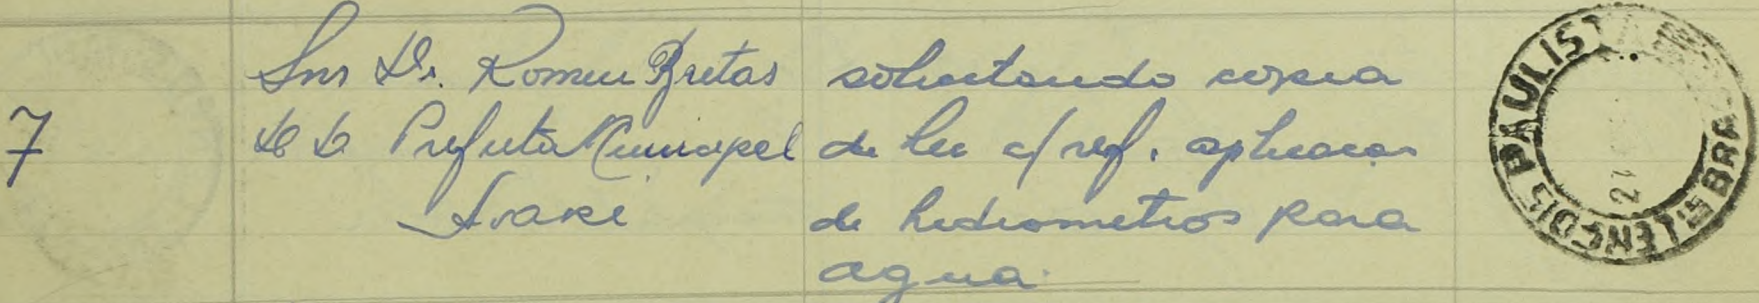 7
Snr Dr. Romeu Bretas
DD Prefeito Municipal
Avaré
solicitando copia
de lei c/ ref. aplicacao
de hidrometros para
agua.
LENÇÓIS PAULISTA
BRA
21